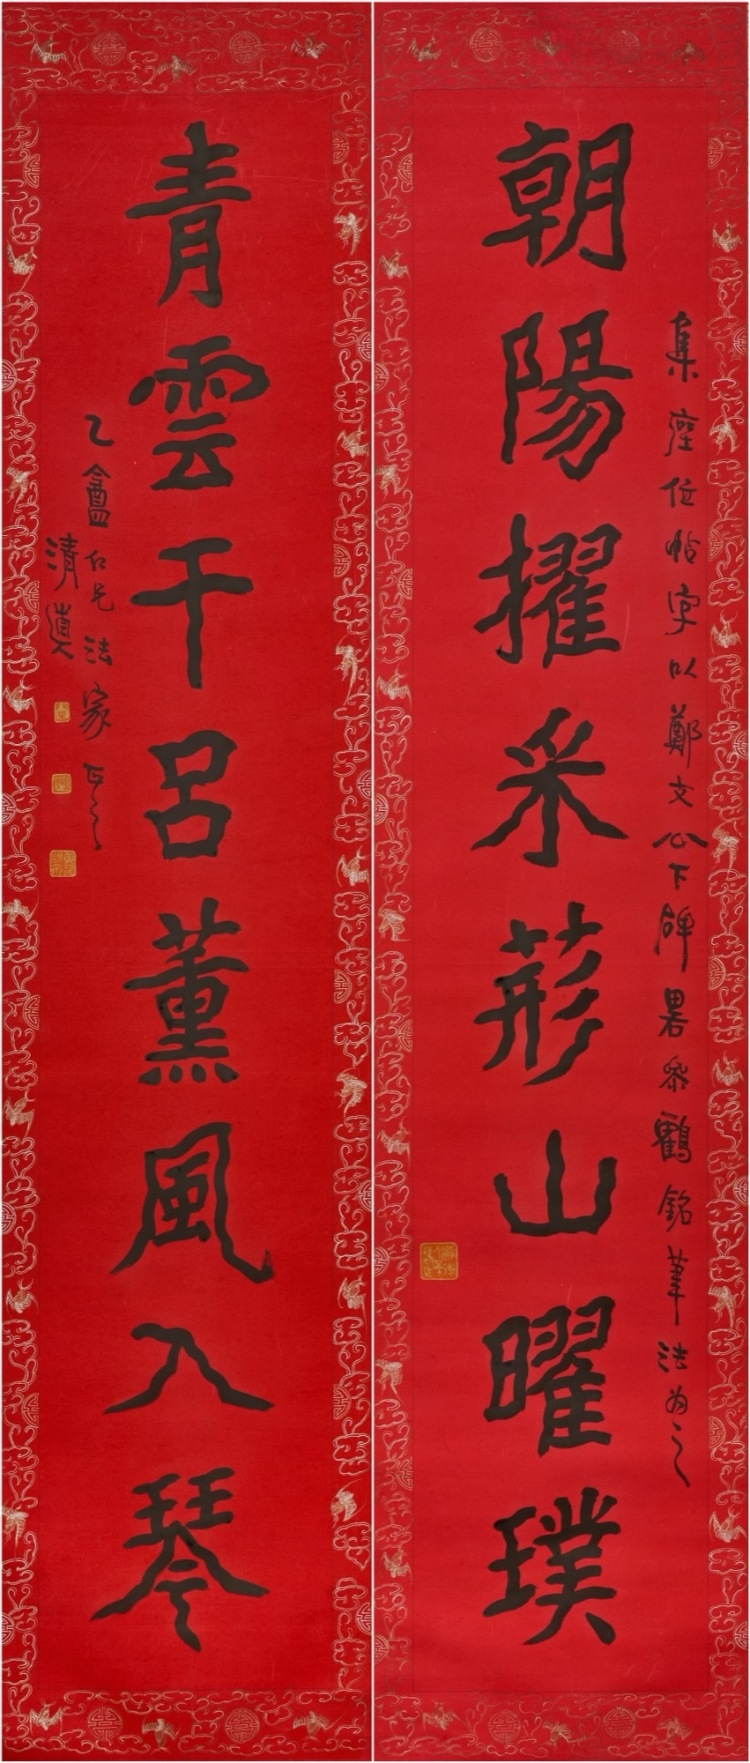 集座位帖字以鄭文公下碑畧參鶴銘筆法為之
朝陽擢采荊山曜璞
青雲干呂薰風入琴
乙盦仁兄法家正之
清道人